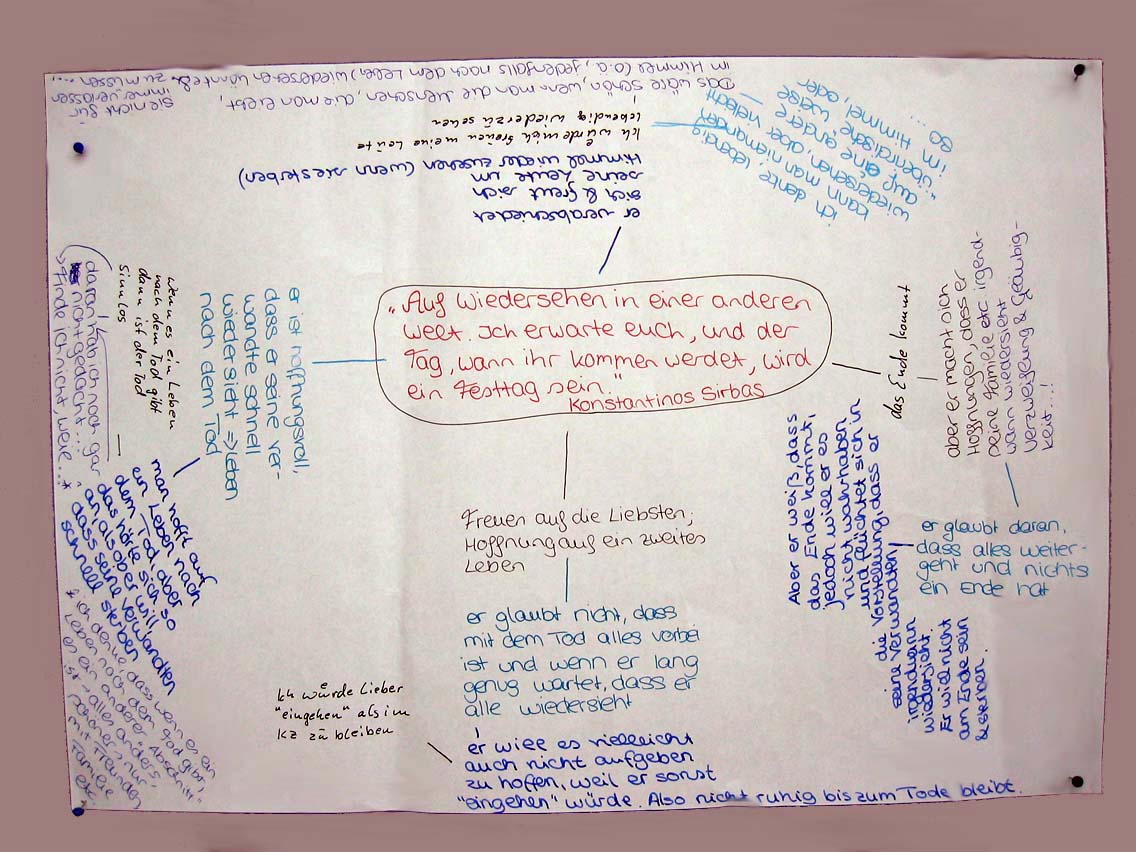 "Auf Wiedersehen in einer anderen
Welt. Ich erwarte euch, und der
Tag, wann ihr kommen werdet, wird
ein Festtag sein."
Konstantinos Sirbas
Das wäre schön, wenn man die Menschen, die man liebt,
im Himmel (o.ä, jedenfalls nach dem Leben) wiedersehen könnte &
sie nicht für
immer verlassen
zu müssen ...
Ich würde mich freuen meine Leute
lebendig wiederzusehen
er verabschiedet
sich & freut sich
seine Leute im
Himmel wieder zusehen (wenn sie sterben)
ich denke lebendig
kann man niemanden
wiedersehen, aber vielleicht
auf eine andere,
überirdische Weise –
im Himmel, oder
so ...
das Ende kommt
aber er macht sich
Hoffnungen, dass er
seine Familie etc irgend-
wann wiedersieht
Verzweiflung & Gläubig-
keit...!
er glaubt daran,
dass alles weiter-
geht und nichts
ein Ende hat
Aber er weiß, dass
das Ende kommt,
jedoch will er es
nicht wahrhaben
und flüchtet sich in
die Vorstellung, dass er
seine Verwandten
irgendwann
wiedersieht.
Er will nicht
am Ende sein
Freuen auf die Liebsten;
Hoffnung auf ein zweites
Leben
er glaubt nicht, dass
mit dem Tod alles vorbei
ist und wenn er lang
genug wartet, dass er
alle wiedersieht
er will es vielleicht
auch nicht aufgeben
zu hoffen, weil er sonst
"eingehen" würde. Also nicht ruhig bis zum Tode bleibt.
Ich würde lieber
"eingehen" als im
KZ zu bleiben
er ist hoffnungsvoll,
dass er seine Ver-
wandte schnell
wiedersieht => Leben
nach dem Tod
wenn es ein Leben
nach dem Tod gibt
dann ist der Tod
sinnlos
daran hab ich noch gar
nicht gedacht...!
> Finde ich nicht, weil... *
man hofft auf
ein Leben nach
dem Tod, aber
das hörte sich so
an, als ob er will
dass seine Verwandten
schnell sterben
* ich denke, dass wenn es ein
Leben nach dem Tod gibt,
es ein anderer Abschnitt
ist -> alles anders
schöner, nur
mit Freunden
Familie
etc